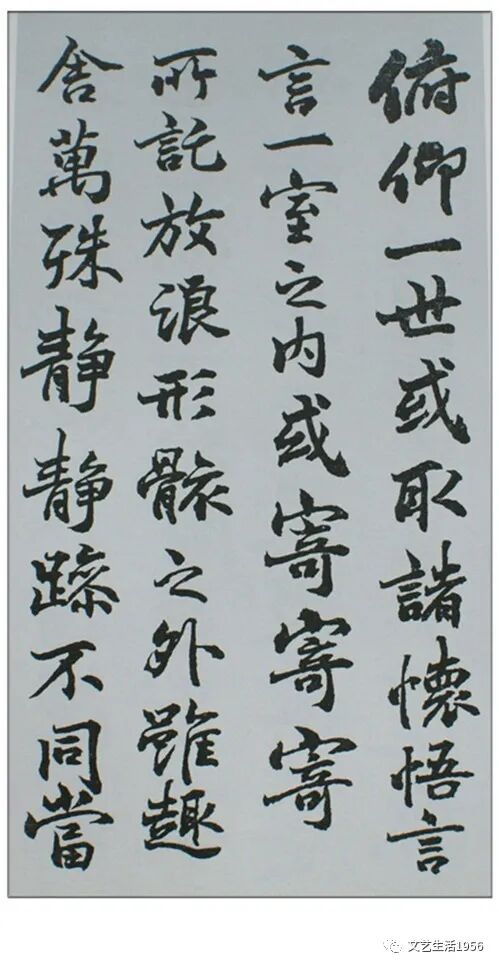 俯仰一世或取諸懷悟言
言一室之内或寄寄寄
所託放浪形骸之外雖趣
舍萬殊静静躁不同當
文艺生活1956